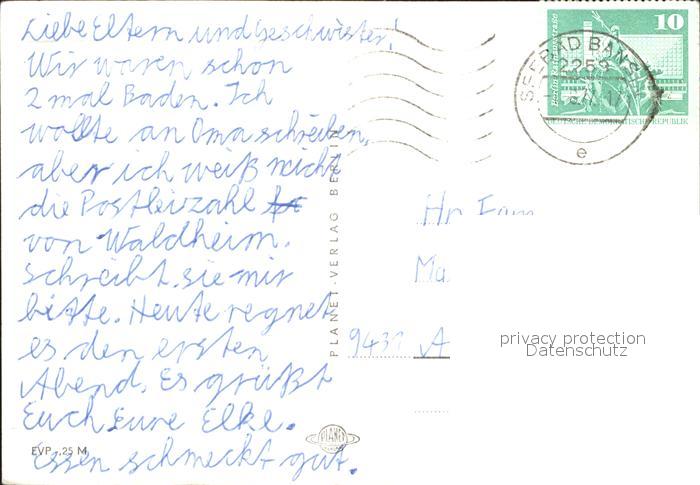 Liebe Eltern und Geschwister!
Wir waren schon
2 mal Baden. Ich
wollte an Oma schreiben,
aber ich weiß nicht
die Postleizahl
von Waldheim.
Schreibt sie mir
bitte. Heute regnet
es den ersten
Abend. Es grüßt
Euch Eure Elke.
Essen schmeckt gut.
EVP -.25 M
PLANET-VERLAG BERLIN
PLANET
SEEBAD BANSIN
2259
e
10
Berlin, Rathausstraße
DEUTSCHE DEMOKRATISCHE REPUBLIK
Hr Fam
Ma
9431 A
privacy protection
Datenschutz